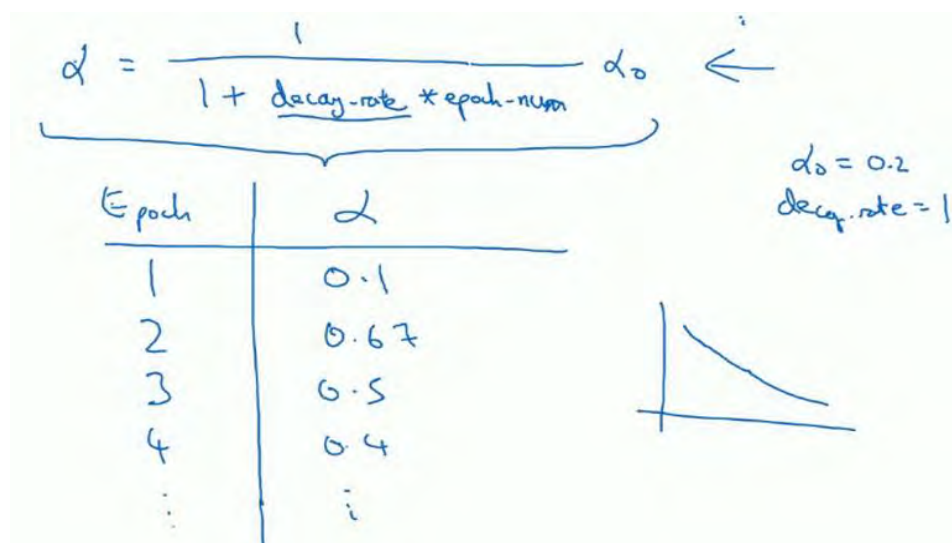 α = 1 / (1 + decay-rate * epoch-num) α₀ ←
α₀ = 0.2
decay.rate = 1
Epoch | α
1 | 0.1
2 | 0.67
3 | 0.5
4 | 0.4
⋮ | ⋮